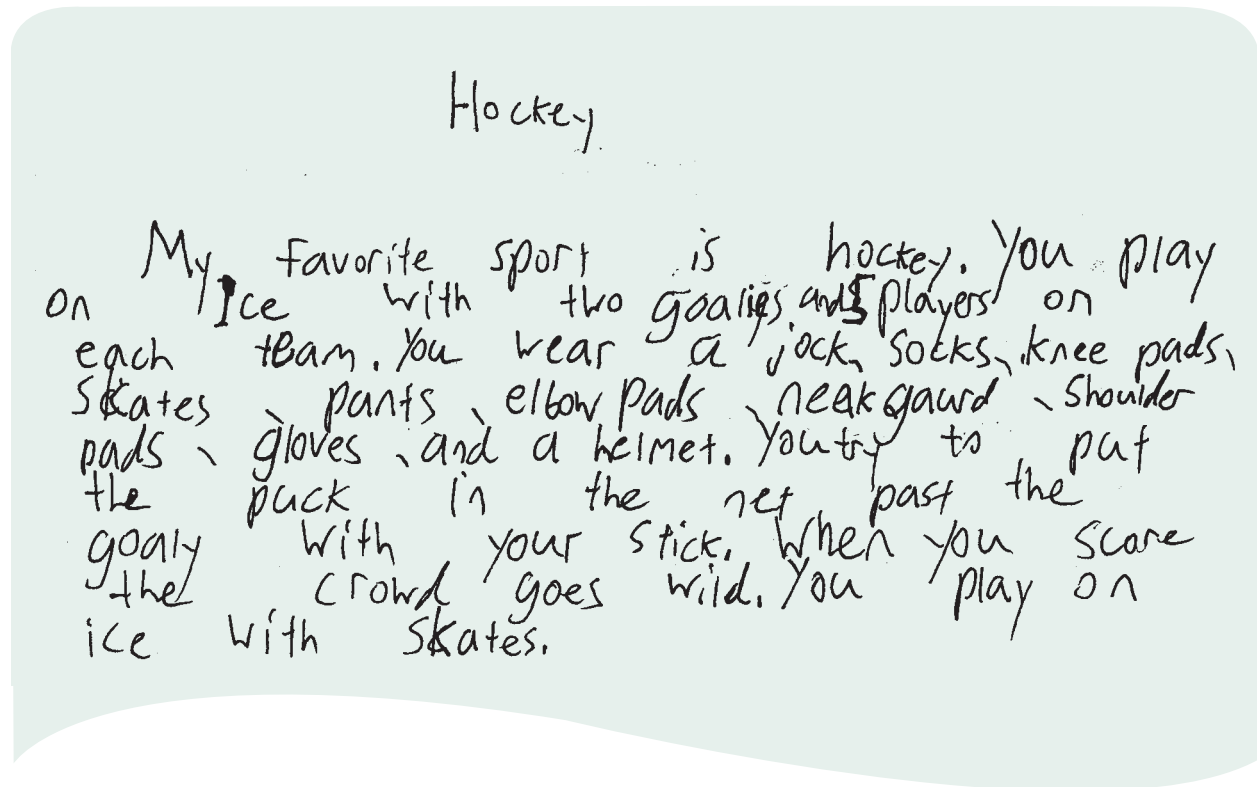 Hockey
My favorite sport is hockey. You play
on Ice with two goalies and 5 players on
each team. You wear a jock, socks, knee pads,
skates, pants, elbow pads, neak gaurd, shoulder
pads, gloves, and a helmet. You try to put
the puck in the net past the
goaly with your stick. When you score
the crowd goes wild. You play on
ice with skates.